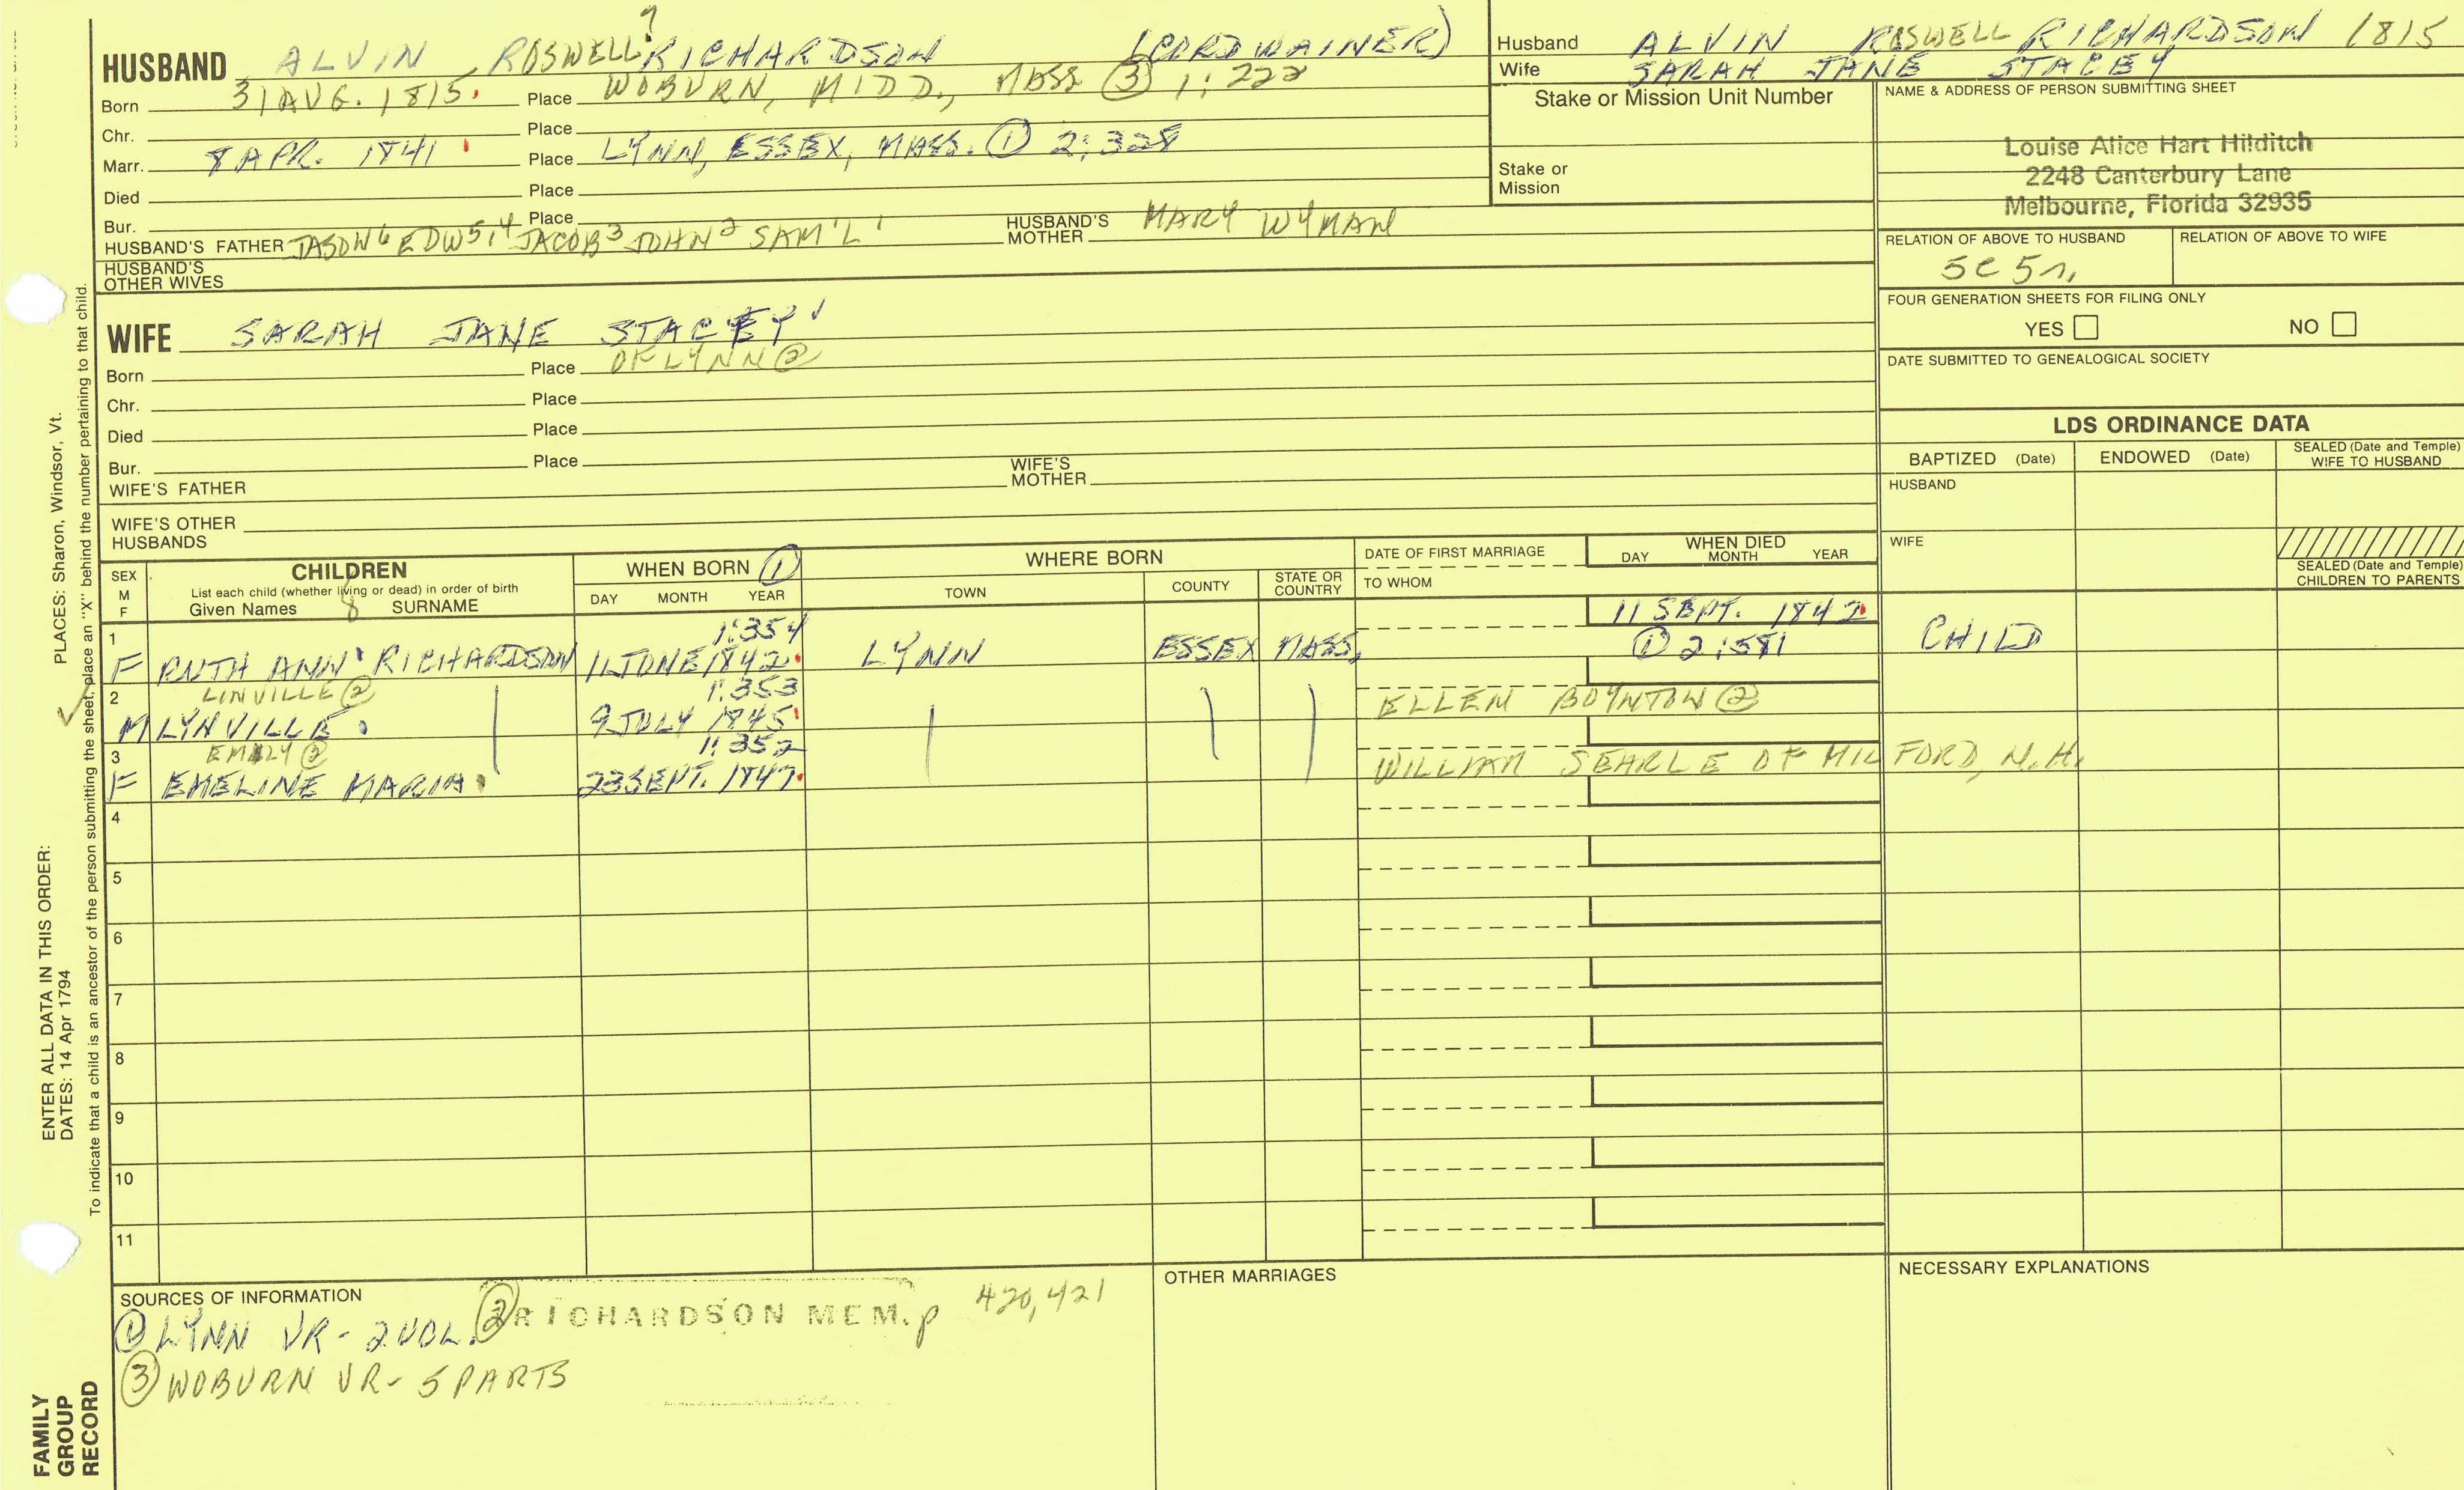 HUSBAND ALVIN ROSWELL ? RICHARDSON 7 (CORDWAINER)
Born 31 AUG. 1815. Place WOBURN, MIDD., MASS ③ 1:222
Chr. Place
Marr. 8 APR. 1841 Place LYNN, ESSEX, MASS. ① 2:328
Died Place
Bur. Place
HUSBAND'S FATHER JASON6 EDW5,4 JACOB3 JOHN2 SAM'L1 HUSBAND'S MOTHER MARY WYMAN
HUSBAND'S OTHER WIVES
WIFE SARAH JANE STACEY
Born Place OF LYNN ②
Chr. Place
Died Place
Bur. Place
WIFE'S FATHER WIFE'S MOTHER
WIFE'S OTHER HUSBANDS
Husband ALVIN ROSWELL RICHARDSON 1815
Wife SARAH JANE STACEY
Stake or Mission Unit Number
Stake or
Mission
NAME & ADDRESS OF PERSON SUBMITTING SHEET
Louise Alice Hart Hilditch
2248 Canterbury Lane
Melbourne, Florida 32935
RELATION OF ABOVE TO HUSBAND RELATION OF ABOVE TO WIFE
5C 5r.
FOUR GENERATION SHEETS FOR FILING ONLY
YES NO
DATE SUBMITTED TO GENEALOGICAL SOCIETY
LDS ORDINANCE DATA
BAPTIZED (Date) ENDOWED (Date) SEALED (Date and Temple) WIFE TO HUSBAND
HUSBAND
WIFE
SEALED (Date and Temple) CHILDREN TO PARENTS
SEX M F
CHILDREN
List each child (whether living or dead) in order of birth
Given Names 8 SURNAME
WHEN BORN ①
DAY MONTH YEAR
WHERE BORN
TOWN COUNTY STATE OR COUNTRY
DATE OF FIRST MARRIAGE
TO WHOM
WHEN DIED
DAY MONTH YEAR
1 1:354 11 SEPT. 1842
F RUTH ANN RICHARDSON 11 JUNE 1842 LYNN ESSEX MASS. ① 2:581 CHILD
2 LINVILLE ② 1:353 ELLEN BOYNTON ②
M LYNVILLE 9 JULY 1845
3 EMILY ② 1:352 WILLIAM SEARLE OF MILFORD, N.H.
F EMELINE MARIA 23 SEPT. 1847
4
5
6
7
8
9
10
11
SOURCES OF INFORMATION
① LYNN VR - 2 VOL. ② RICHARDSON MEM. p 420, 421
③ WOBURN VR - 5 PARTS
OTHER MARRIAGES
NECESSARY EXPLANATIONS
PLACES: Sharon, Windsor, Vt.
ENTER ALL DATA IN THIS ORDER:
DATES: 14 Apr 1794
To indicate that a child is an ancestor of the person submitting the sheet, place an "X" behind the number pertaining to that child.
FAMILY
GROUP
RECORD